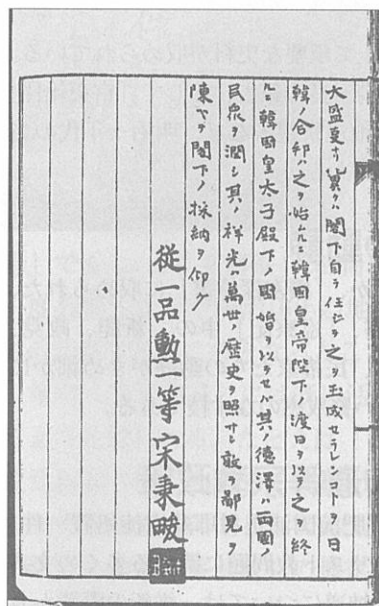 大盛夏ナリ冀クハ閣下自ラ任ジテ之ヲ玉成セラレンコトヲ日
韓ノ合邦ハ之ヲ始ムルニ韓国皇帝陛下ノ渡日ヲ以テシ之ヲ終
ルニ韓国皇太子殿下ノ国婚ヲ以テセバ其ノ徳澤ハ両国
民衆ヲ潤シ其ノ祥光ハ萬世ノ歴史ヲ照サン敢テ鄙見ヲ
陳ベテ閣下ノ採納ヲ仰グ
從一品勲一等宋秉畯